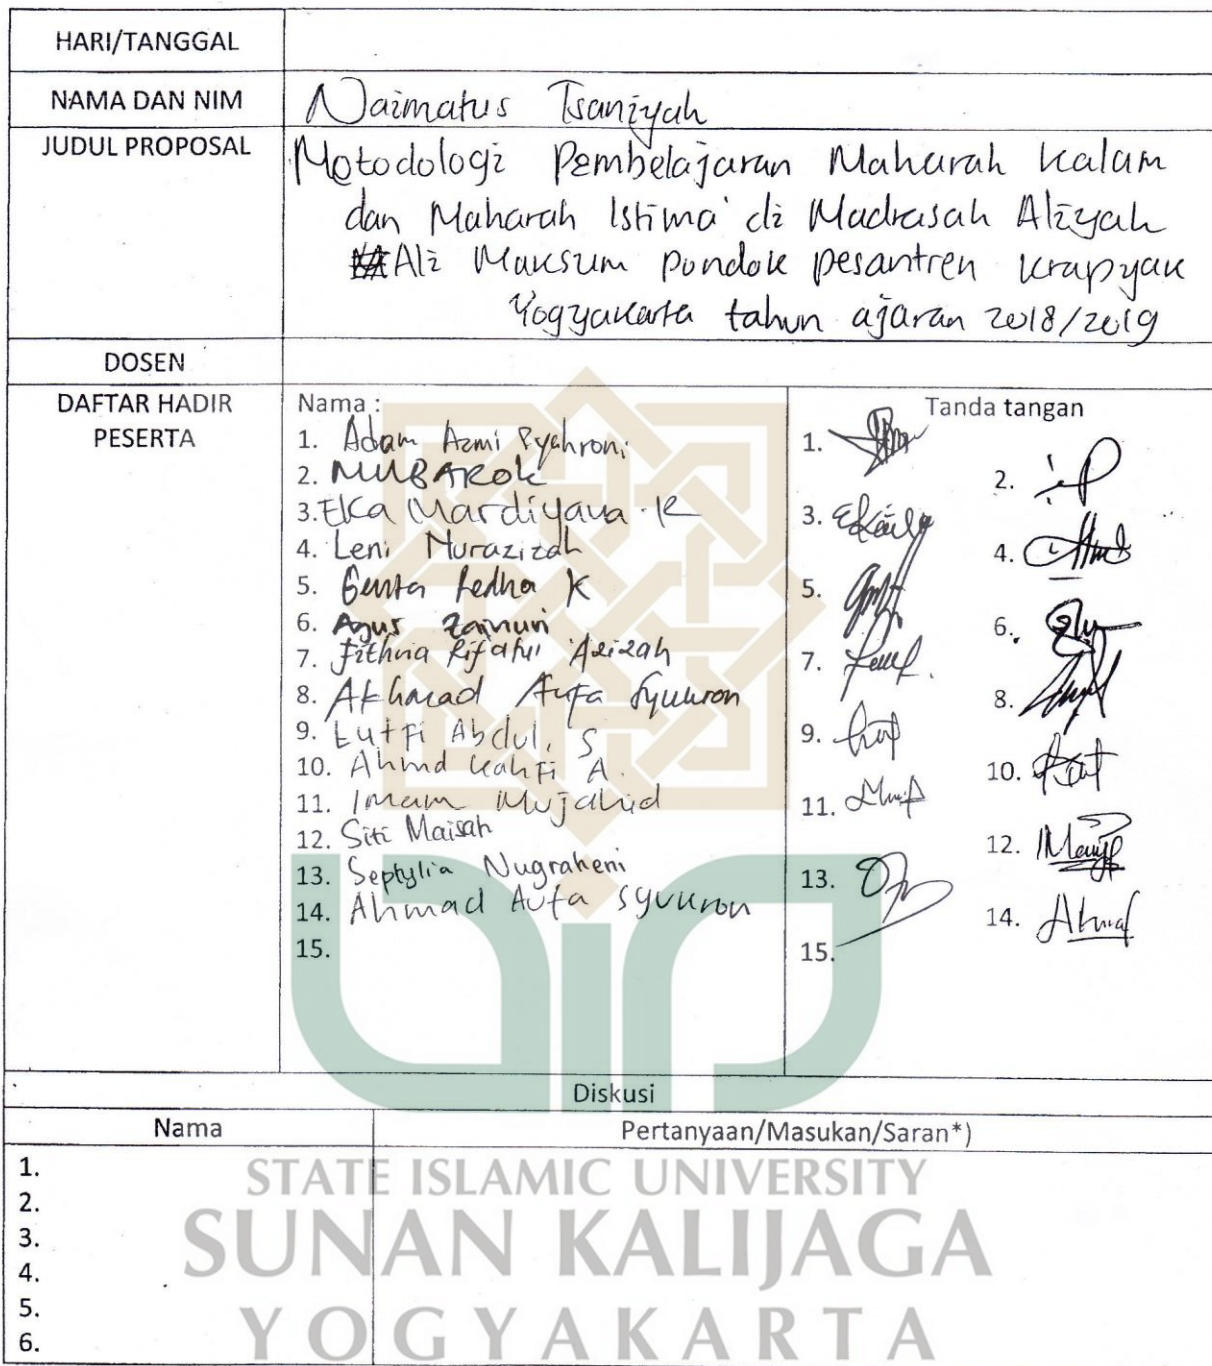 HARI/TANGGAL
NAMA DAN NIM Naimatus Tsaniyah
JUDUL PROPOSAL Metodologi Pembelajaran Maharah Kalam
dan Maharah Istima' di Madrasah Aliyah
Ali Maksum pondok pesantren Krapyak
Yogyakarta tahun ajaran 2018/2019
DOSEN
DAFTAR HADIR PESERTA
Nama :
1. Adam Azmi Syahroni
2. MUBAROK
3. Eka Mardiyana . K
4. Leni Nurazizah
5. Genta Redha K
6. Agus Zainuri
7. Fithria Rif'atul Azizah
8. Akhmad Aufa Syukron
9. Lutfi Abdul. S
10. Ahmd Kahfi A.
11. Imam Mujahid
12. Siti Maisah
13. Septylia Nugraheni
14. Ahmad Aufa Syukron
15.
Tanda tangan
1.
2.
3.
4.
5.
6.
7.
8.
9.
10.
11.
12.
13.
14.
15.
Diskusi
Nama Pertanyaan/Masukan/Saran*)
1.
2.
3.
4.
5.
6.
STATE ISLAMIC UNIVERSITY
SUNAN KALIJAGA
YOGYAKARTA